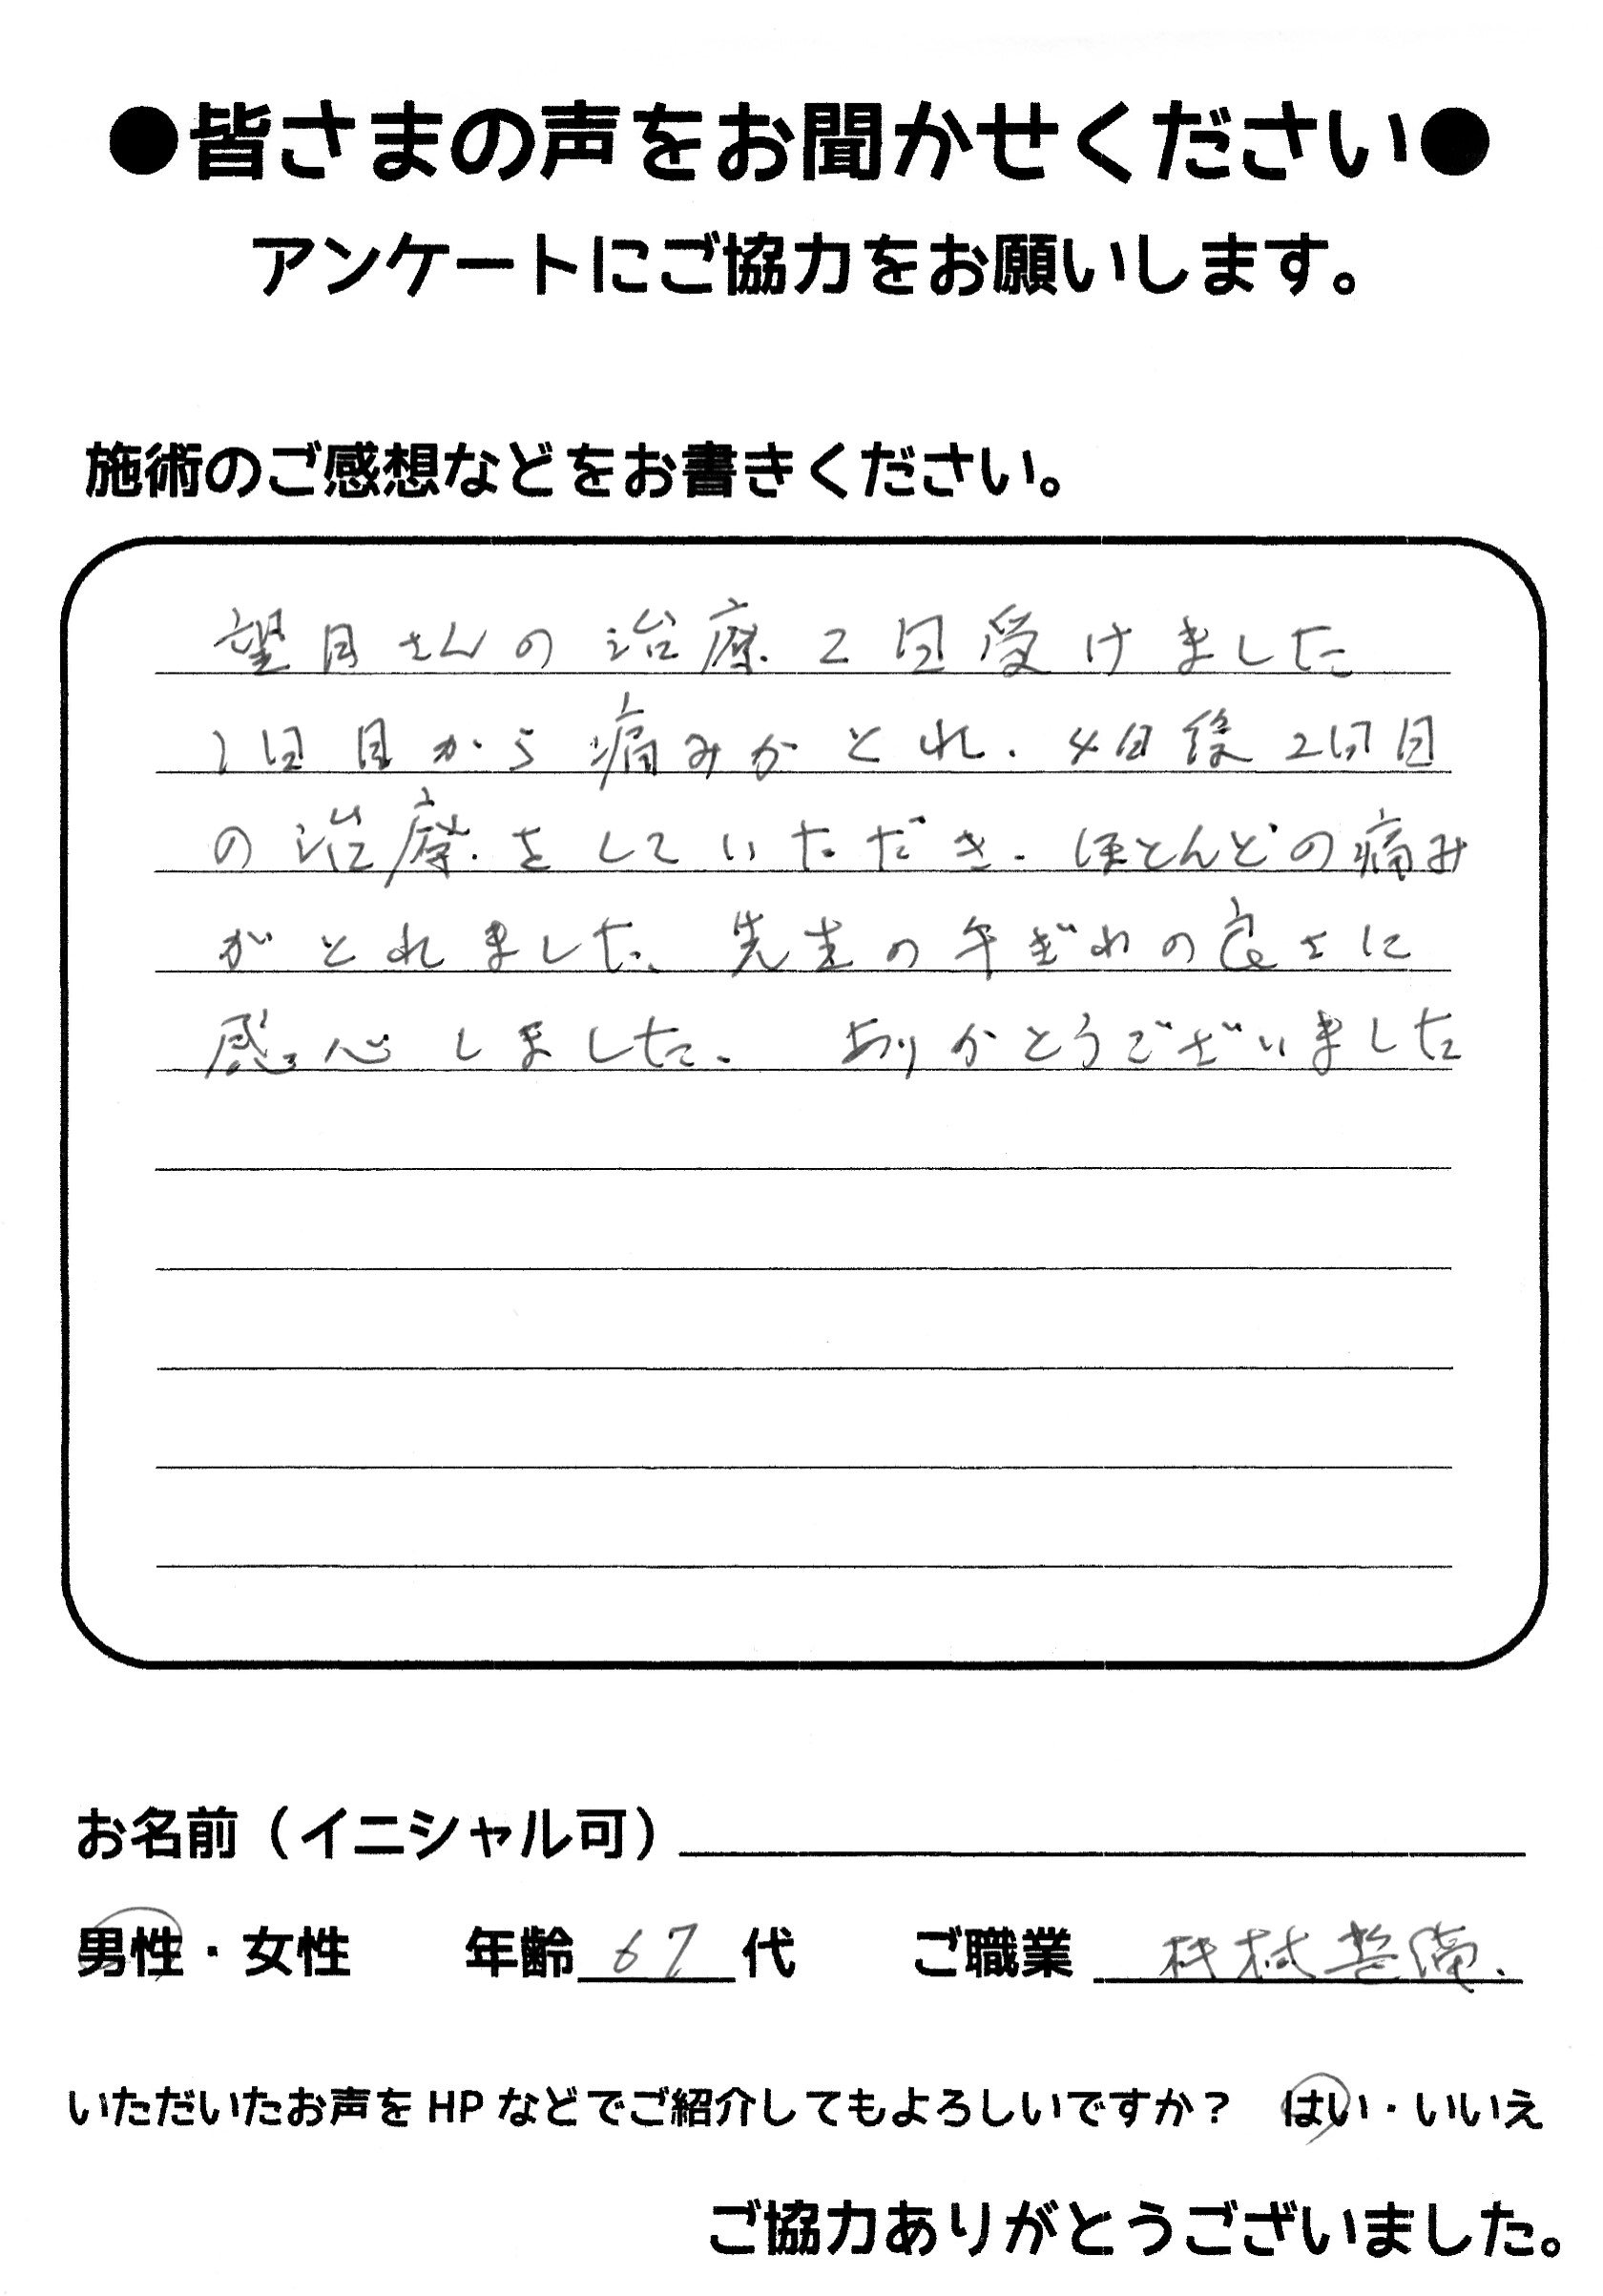 ●皆さまの声をお聞かせください●
アンケートにご協力をお願いします。
施術のご感想などをお書きください。
望月さんの治療2回受けました
1回目から痛みがとれ、4日後2回目
の治療をしていただき、ほとんどの痛み
がとれました、先生の手ぎわの良さに
感心しました。 ありがとうございました
お名前（イニシャル可）
男性・女性 年齢 67 代 ご職業
いただいたお声をHPなどでご紹介してもよろしいですか？ はい・いいえ
ご協力ありがとうございました。